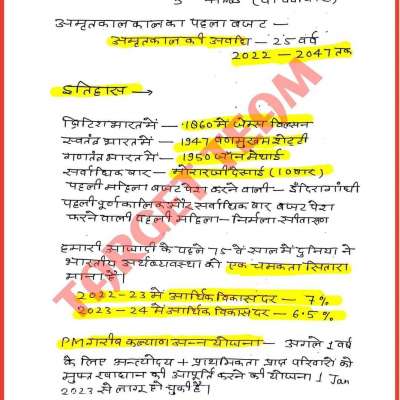 अमृतकाल काल का पहला बजट —
अमृतकाल की अवधि — 25 वर्ष
2022 – 2047 तक
इतिहास →
ब्रिटिश भारत में — 1860 में जेम्स विल्सन
स्वतंत्र भारत में — 1947 षणमुखम शेट्टी
गणतंत्र भारत में — 1950 जॉन मथाई
सर्वाधिक बार — मोरारजी देसाई (10 बार)
पहली महिला बजट पेश करने वाली — इंदिरा गांधी
पहली पूर्णकालिक और सर्वाधिक बार बजट पेश
करने वाली पहली महिला – निर्मला सीतारमण
हमारी आजादी के पहले 75 वें साल में दुनिया ने
भारतीय अर्थव्यवस्था को एक चमकता सितारा
माना है।
2022-23 में आर्थिक विकास दर – 7%
2023-24 में आर्थिक विकास दर – 6.5%
PM गरीब कल्याण अन्न योजना – अगले 1 वर्ष
के लिए अन्त्योदय + प्राथमिकता प्राप्त परिवारों को
मुफ्त खाद्यान्न की आपूर्ति करने की योजना 1 Jan
2023 से लागू हो चुकी है।
TARGET TEAM